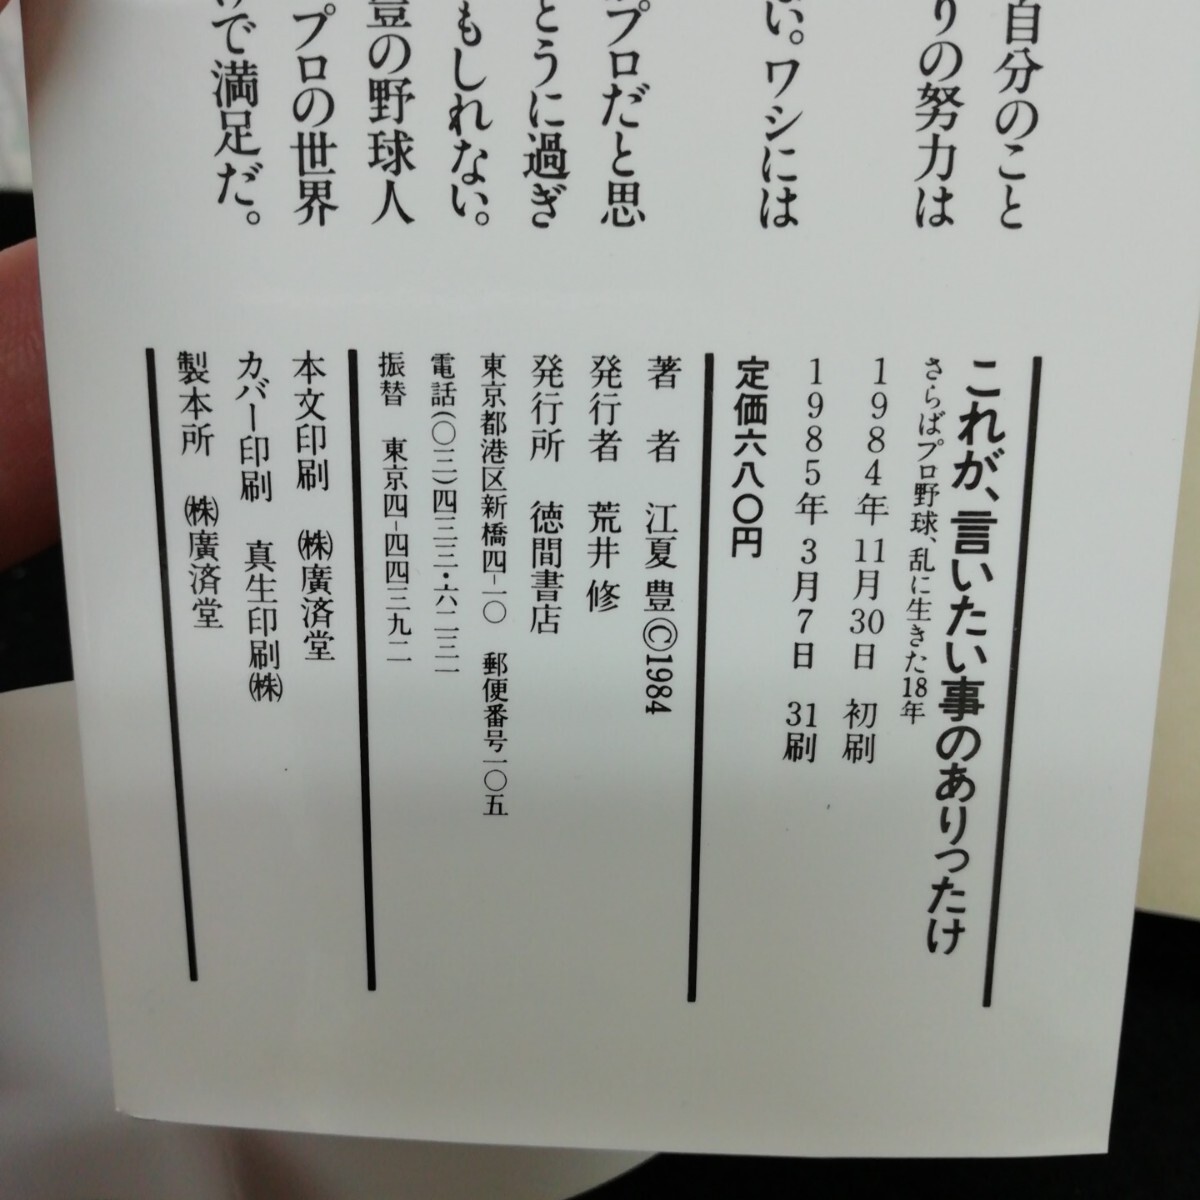 自分のこと
りの努力は
い。ワシには
プロだと思
とうに過ぎ
もしれない。
豊の野球人
プロの世界
で満足だ。
これが、言いたい事のありったけ
さらばプロ野球、乱に生きた18年
1984年11月30日 初刷
1985年3月7日 31刷
定価六八〇円
著者 江夏 豊©1984
発行者 荒井 修
発行所 徳間書店
東京都港区新橋四-一〇 郵便番号一〇五
電話(〇三)四三三・六二三一
振替 東京四-四四三九二
本文印刷 ㈱廣済堂
カバー印刷 真生印刷㈱
製本所 ㈱廣済堂